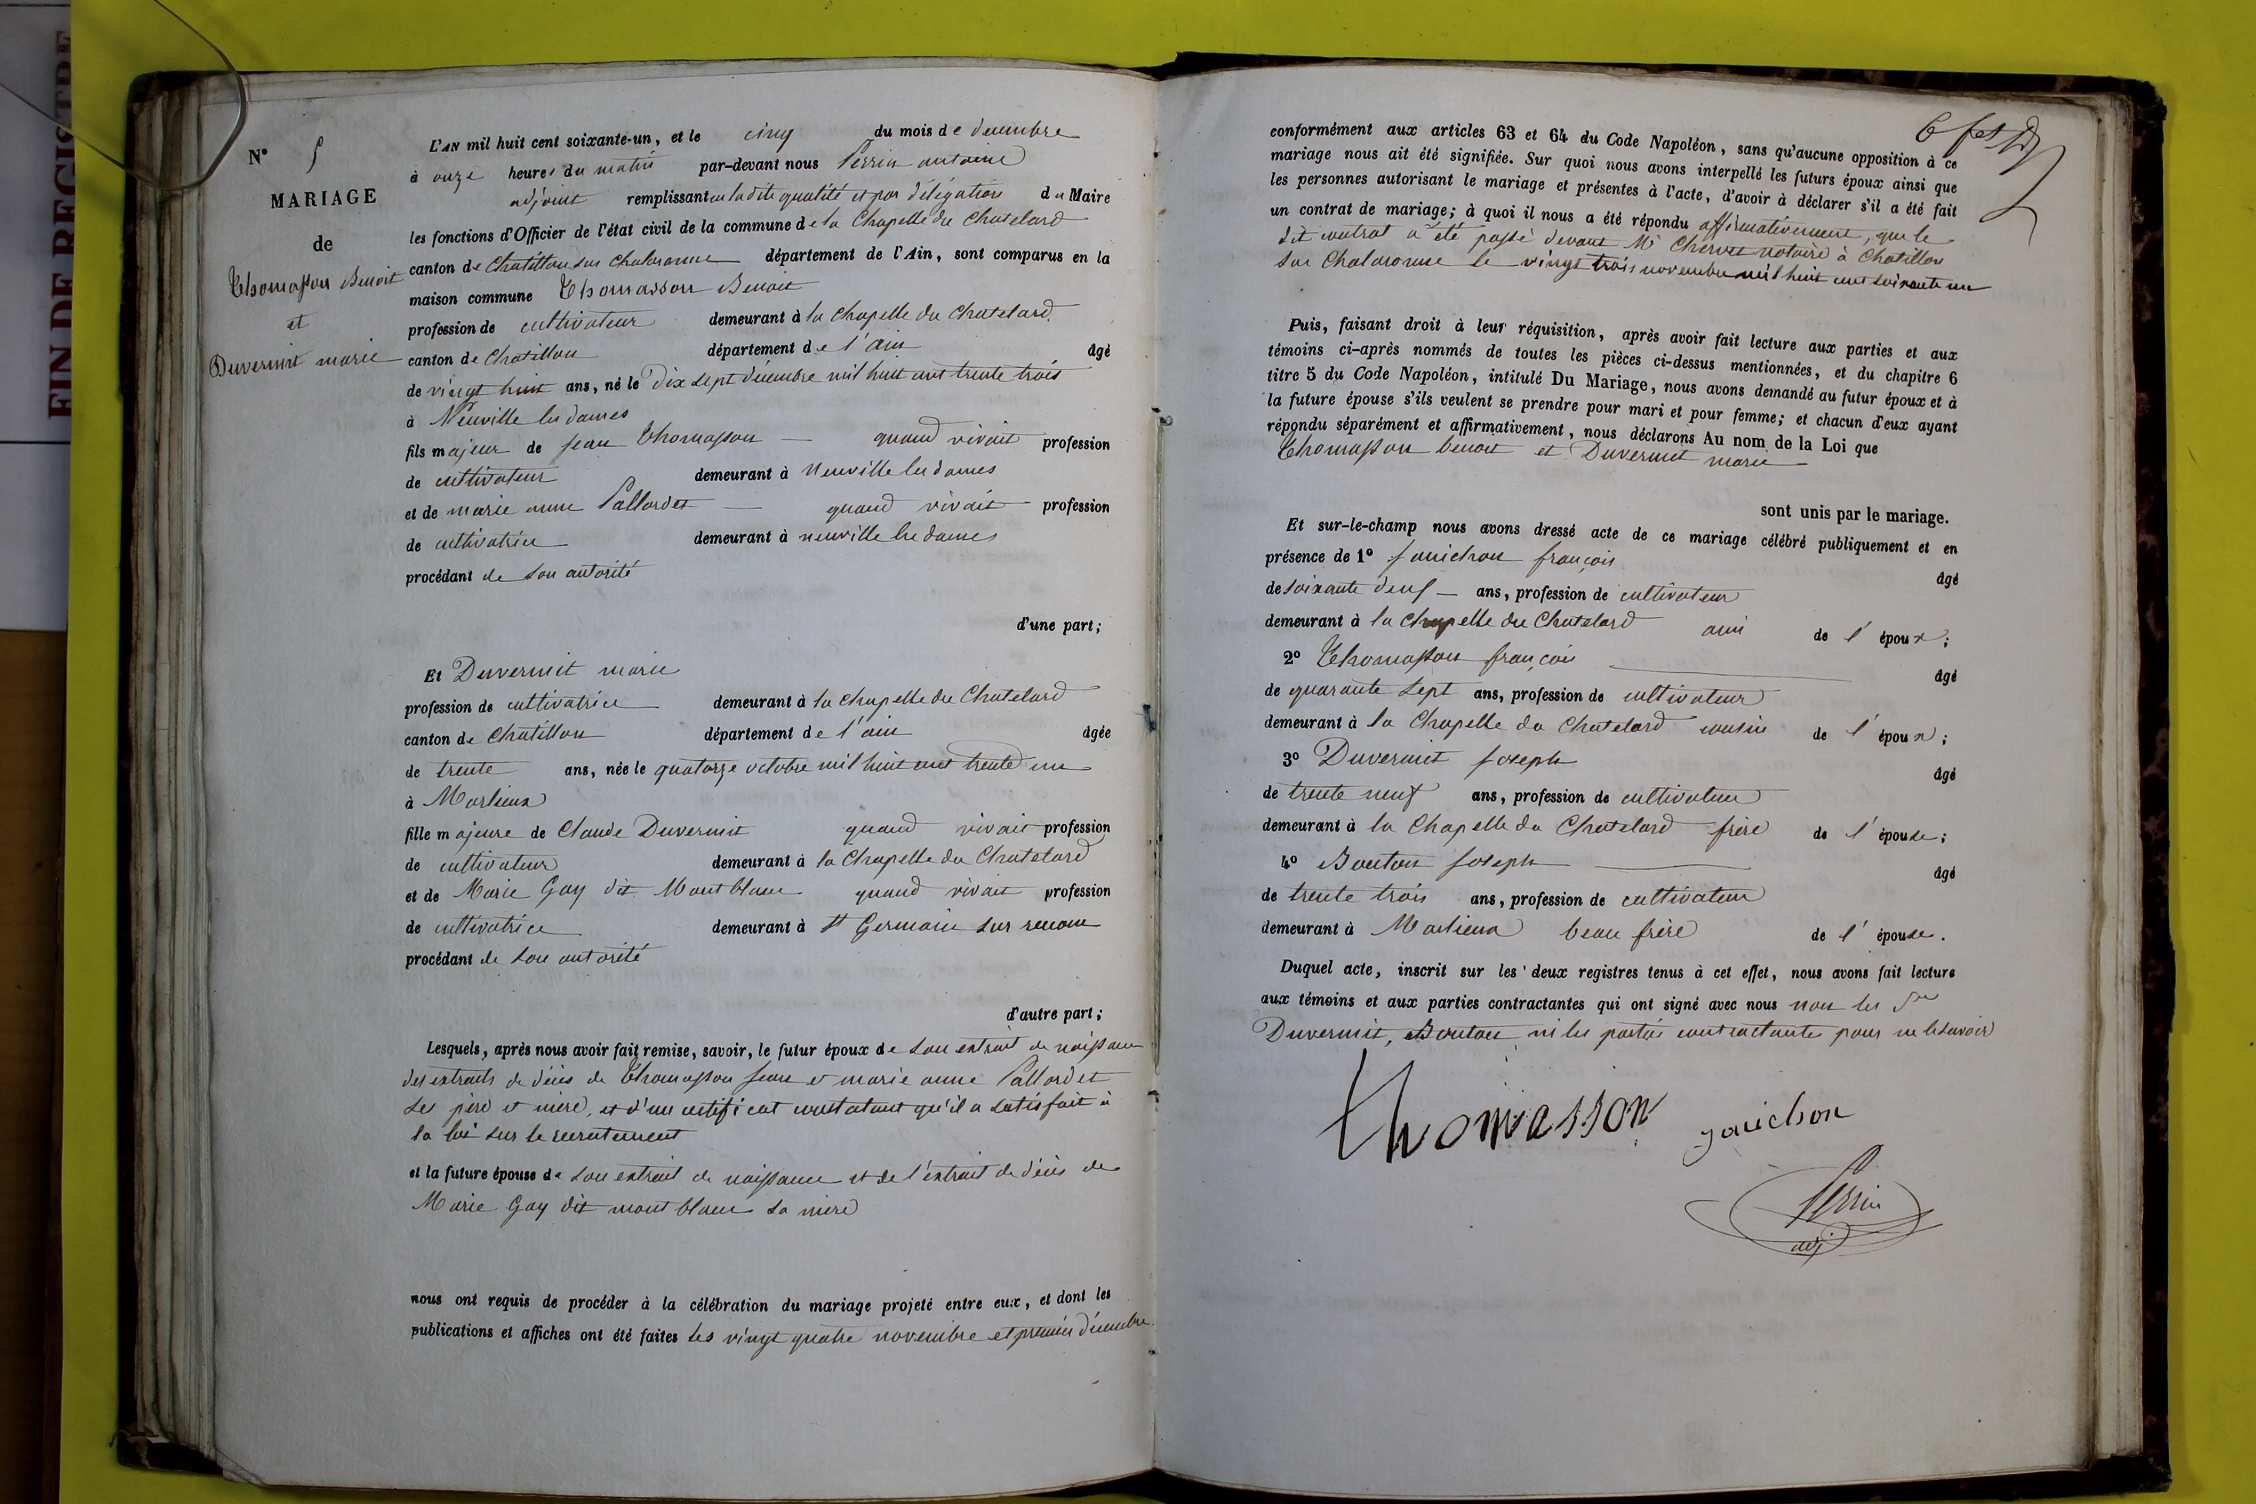 FIN DE REGISTRE
N° 5
MARIAGE
de
Thomasson Benoit
et
Duvernit marie
L'AN mil huit cent soixante-un, et le cinq du mois de decembre
à onze heures du matin par-devant nous Perrin antoine
adjoint remplissant en la dite qualité et par délégation du Maire
les fonctions d'Officier de l'état civil de la commune de la Chapelle du Chatelard
canton de Chatillon sur Chalaronne département de l'Ain, sont comparus en la
maison commune Thomasson Benoit
profession de cultivateur demeurant à la Chapelle du Chatelard
canton de Chatillon département de l'ain âgé
de vingt huit ans, né le Dix sept decembre mil huit cent trente trois
à Neuville les dames
fils majeur de jean Thomasson — quand vivait profession
de cultivateur demeurant à Neuville les dames
et de marie anne Pallordet — quand vivait profession
de cultivatrice demeurant à neuville les dames
procédant de son autorité
d'une part;
Et Duvernit marie
profession de cultivatrice demeurant à la chapelle du Chatelard
canton de Chatillon département de l'ain âgée
de trente ans, née le quatorze octobre mil huit cent trente un
à Marlieux
fille majeure de Claude Duvernit quand vivait profession
de cultivateur demeurant à la Chapelle du Chatelard
et de Marie Gay dit Montblanc quand vivait profession
de cultivatrice demeurant à St Germain sur renom
procédant de son autorité
d'autre part;
Lesquels, après nous avoir fait remise, savoir, le futur époux de son extrait de naissance
des extraits de décès de Thomasson jean et marie anne Pallordet
ses père et mère, et d'un certificat constatant qu'il a satisfait à
la loi sur le recrutement
et la future épouse de son extrait de naissance et de l'extrait de décès de
Marie Gay dit mont blanc sa mère
nous ont requis de procéder à la célébration du mariage projeté entre eux, et dont les
publications et affiches ont été faites les vingt quatre novembre et premier décembre
conformément aux articles 63 et 64 du Code Napoléon, sans qu'aucune opposition à ce
mariage nous ait été signifiée. Sur quoi nous avons interpellé les futurs époux ainsi que
les personnes autorisant le mariage et présentes à l'acte, d'avoir à déclarer s'il a été fait
un contrat de mariage; à quoi il nous a été répondu affirmativement, que le
dit contrat a été passé devant Me Chervet notaire à Chatillon
sur Chalaronne le vingt trois novembre mil huit cent soixante un
Puis, faisant droit à leur réquisition, après avoir fait lecture aux parties et aux
témoins ci-après nommés de toutes les pièces ci-dessus mentionnées, et du chapitre 6
titre 5 du Code Napoléon, intitulé Du Mariage, nous avons demandé au futur époux et à
la future épouse s'ils veulent se prendre pour mari et pour femme; et chacun d'eux ayant
répondu séparément et affirmativement, nous déclarons Au nom de la Loi que
Thomasson benoit et Duvernit marie
sont unis par le mariage.
Et sur-le-champ nous avons dressé acte de ce mariage célébré publiquement et en
présence de 1° janichon françois
âgé
de soixante deux — ans, profession de cultivateur
demeurant à la chapelle du Chatelard ami de l'époux;
2° Thomasson françois
âgé
de quarante sept ans, profession de cultivateur
demeurant à la Chapelle du Chatelard cousin de l'époux;
3° Duvernit joseph
âgé
de trente neuf ans, profession de cultivateur
demeurant à la Chapelle du Chatelard frère de l'épouse;
4° Bouton joseph
âgé
de trente trois ans, profession de cultivateur
demeurant à Marlieux beau frère de l'épouse.
Duquel acte, inscrit sur les deux registres tenus à cet effet, nous avons fait lecture
aux témoins et aux parties contractantes qui ont signé avec nous non les Srs
Duvernit, Bouton ni les parties contractante pour ne le savoir
thomasson janichon
Perrin
adj